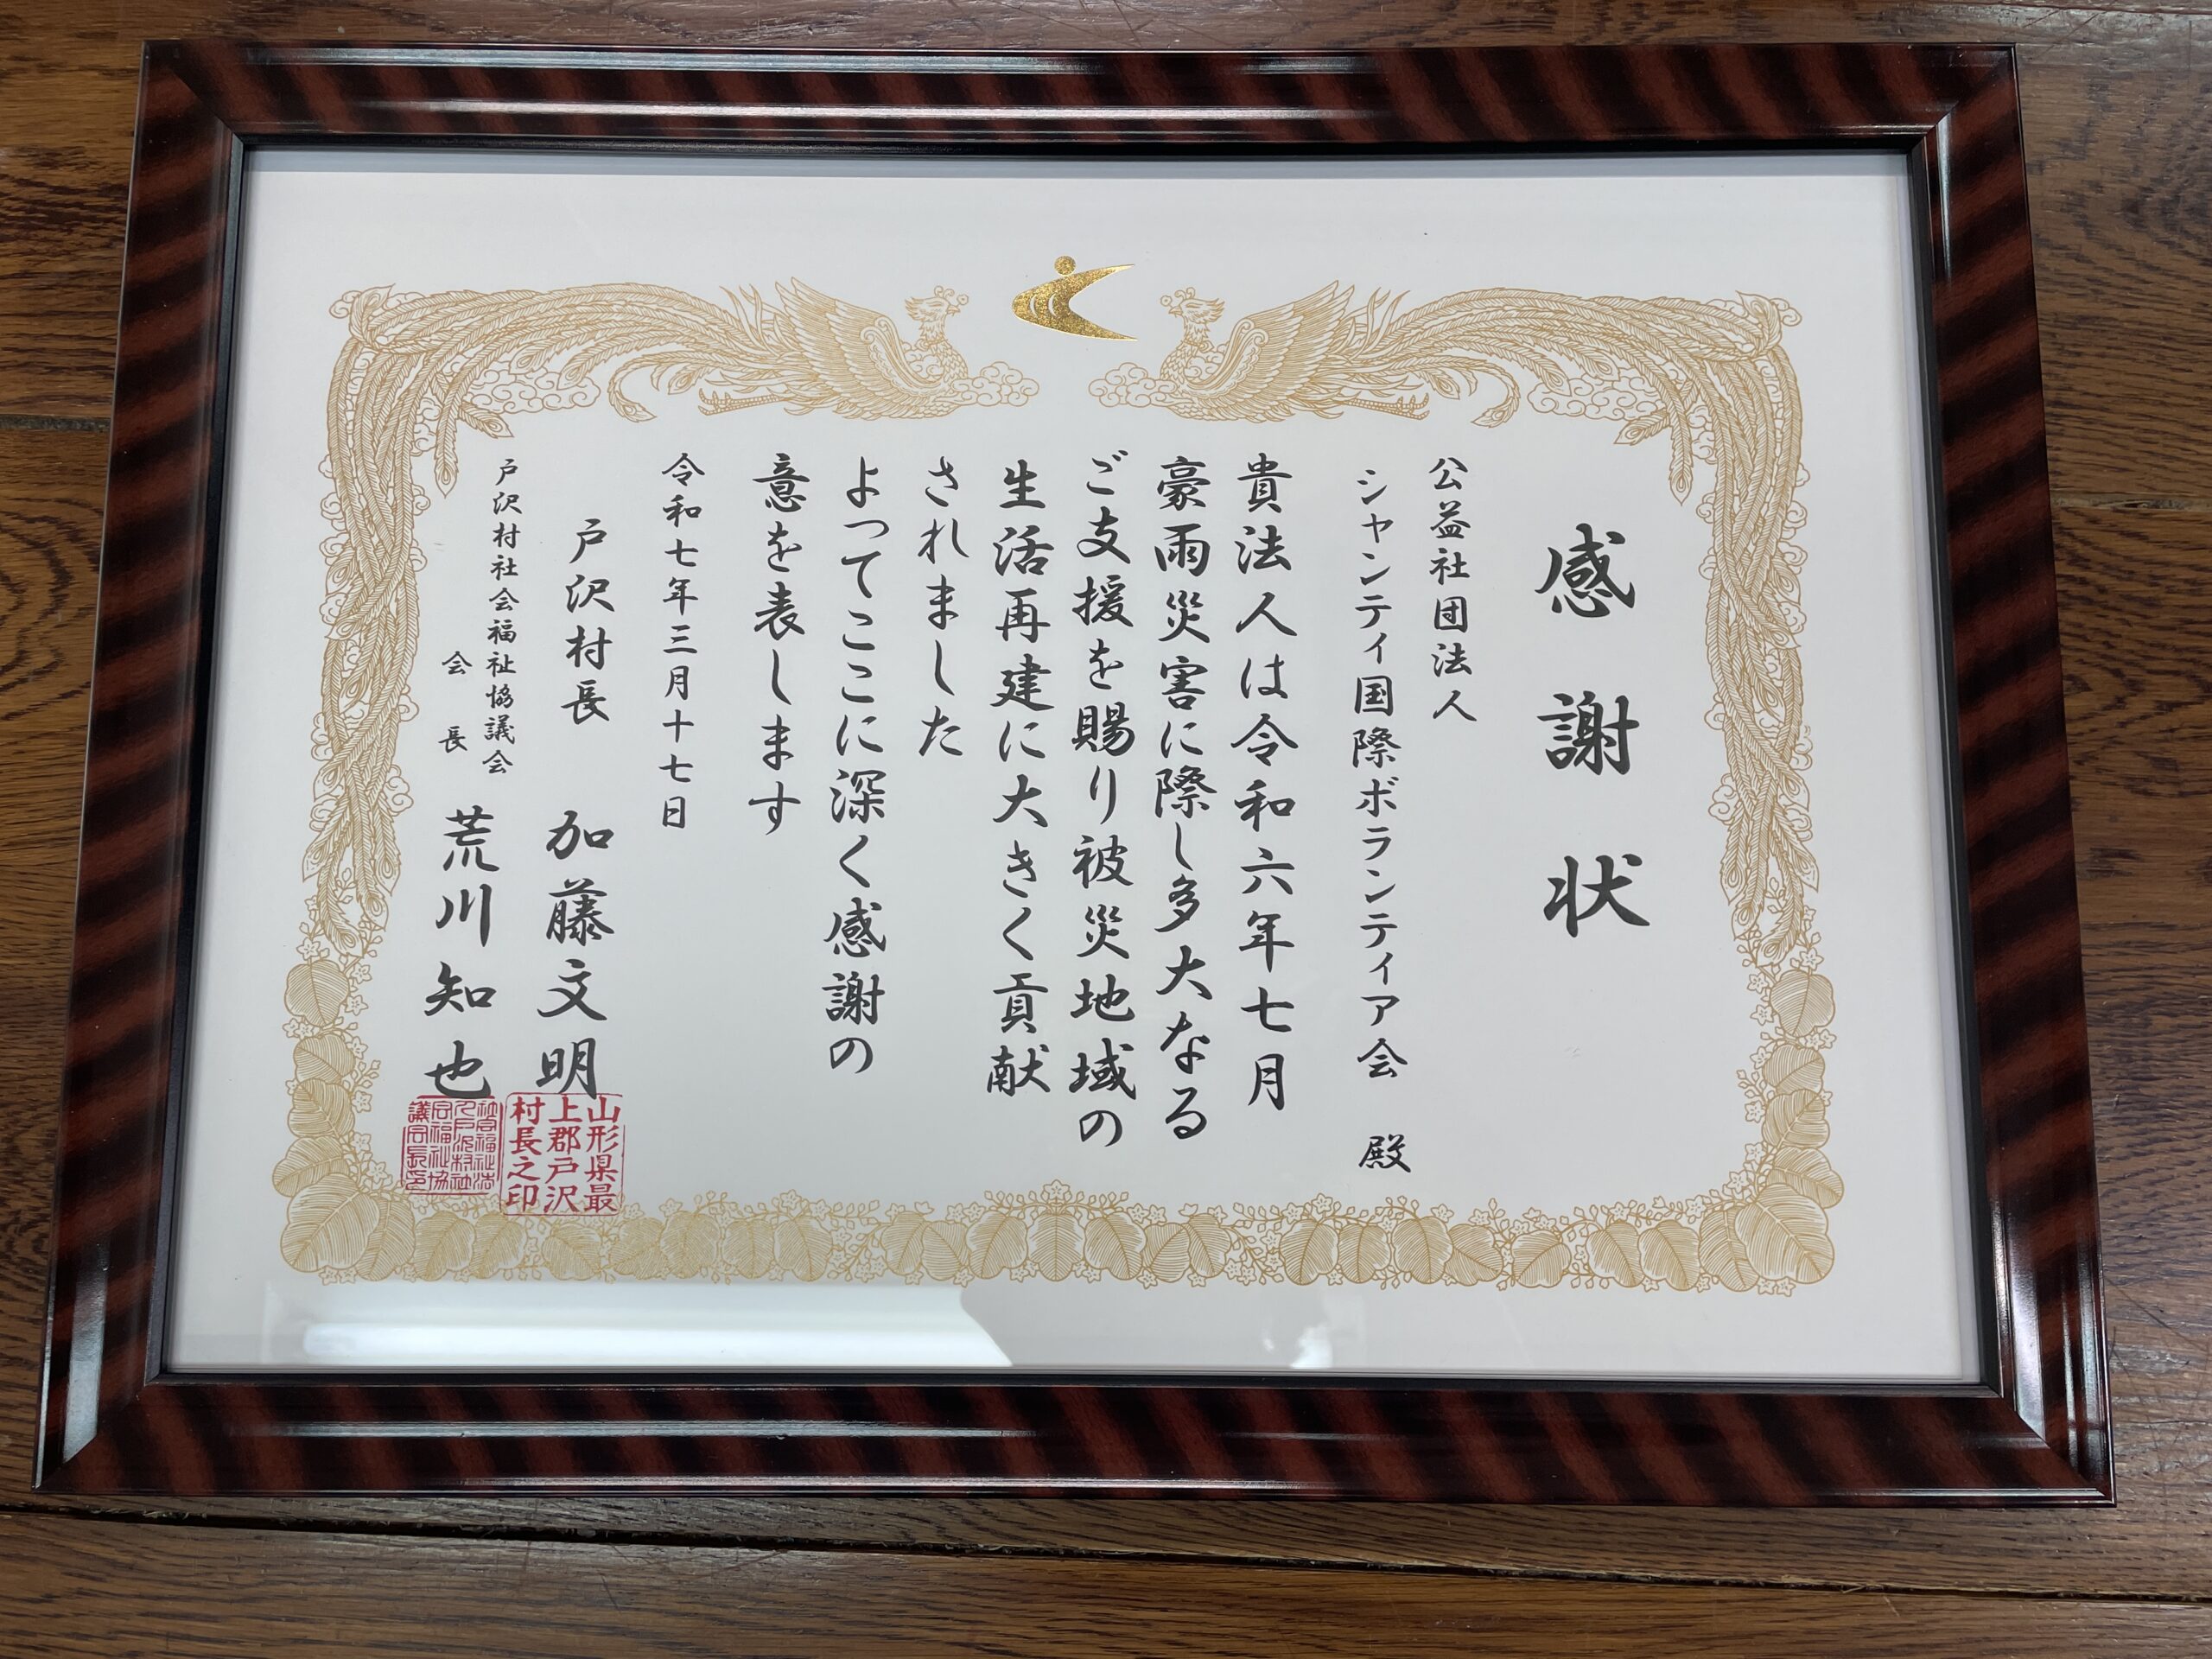 感謝状
公益社団法人
シャンティ国際ボランティア会 殿
貴法人は令和六年七月
豪雨災害に際し多大なる
ご支援を賜り被災地域の
生活再建に大きく貢献
されました
よってここに深く感謝の
意を表します
令和七年三月十七日
戸沢村長 加藤文明
戸沢村社会福祉協議会
会長 荒川知也
山形県最
上郡戸沢
村長之印